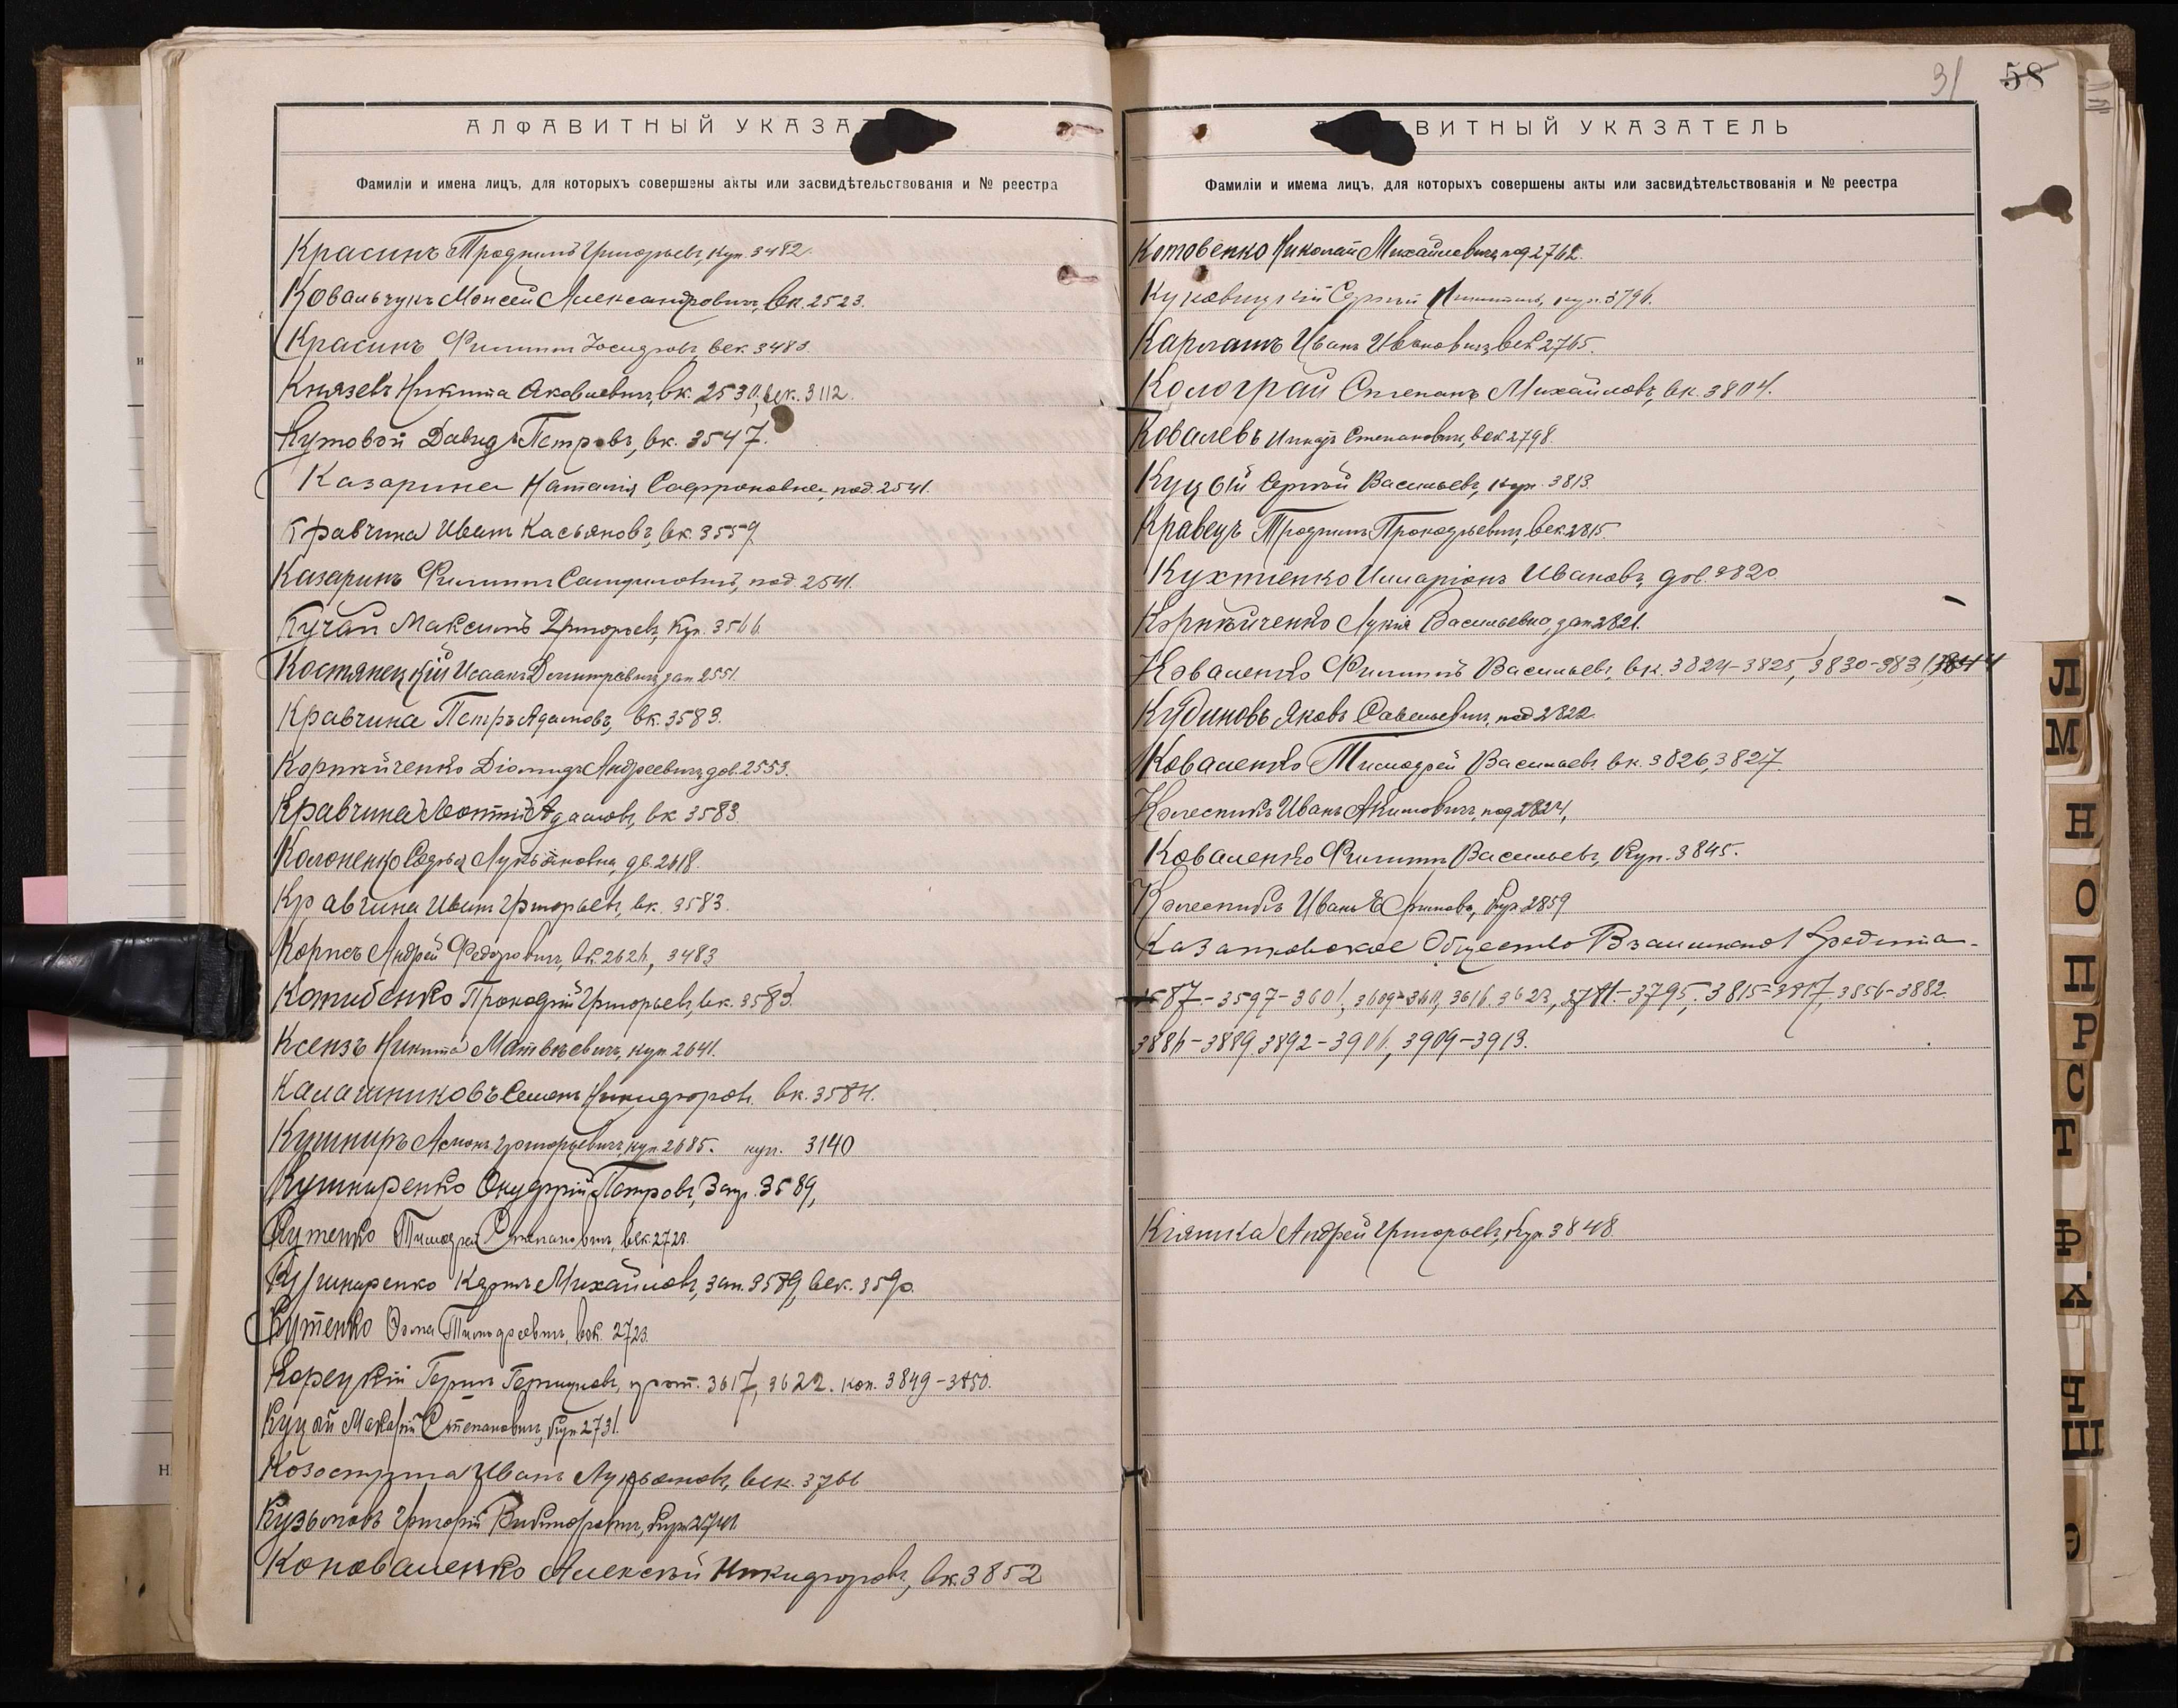 АЛФАВИТНЫЙ УКАЗАТ
Фамиліи и имена лицъ, для которыхъ совершены акты или засвидѣтельствованія и № реестра
Красинъ Трофимъ Григорьевъ, куп. 3482
Ковальчукъ Моисей Александровичъ, вк. 2523.
Красинъ Филиппъ Іосифовъ, век. 3483.
Князевъ Никита Яковлевичъ, вк. 2530, век. 3112.
Кутовой Давидъ Петровъ, вк. 3547.
Казарина Наталія Софроновна, под. 2541.
Кравчина Иванъ Касьяновъ, вк. 3559.
Казаринъ Филиппъ под. 2541.
Кучай Максимъ Григорьевъ, куп. 3566.
Костянецкій Исаакъ Димитріевичъ, зап 2551.
Кравчина Петръ Адамовъ, вк. 3583.
Корнѣйченко Діомидъ Андреевичъ, дов. 2553.
Кравчина Леонтій Адамовъ, вк 3583.
Кононенко Софья Лукьяновна, дв. 2618.
Кравчина Иванъ Григорьевъ, вк. 3583.
Корпсъ Андрей Федоровичъ, вк. 2626, 3483
Прокофій Григорьевъ, вк. 3583.
Ксензъ Никита Матвѣевичъ, куп. 2641.
Калашниковъ Семенъ Никифоровъ. вк. 3584.
Кушниръ Григорьевичъ, куп. 2685. куп. 3140
Кушниренко Онуфрій Петровъ, Зап. 3589,
Кутенко Тимофей Степановичъ, век. 2723.
Кушниренко Карпъ Михайловъ, зап. 3589, век. 3590.
Кутенко Фома Тимофеевичъ, век. 2723.
Корецкій 3617, 3622. коп. 3849-3850.
Куцый Макарій Степановичъ, куп 2731.
Иванъ Лукьяновъ, век. 3766
Кузьмовъ Григорій Никифоровичъ, куп 2741.
Коноваленко Алексѣй Никифоровъ, вк. 3852
31 58
ВИТНЫЙ УКАЗАТЕЛЬ
Фамиліи и имема лицъ, для которыхъ совершены акты или засвидѣтельствованія и № реестра
Котовенко Николай Михайловичъ, под 2762.
Сергѣй Никитинъ, куп. 3796.
Карлашъ Иванъ Ивановичъ, век 2765.
Колограй Степанъ Михайловъ, вк. 3804.
Ковалевъ Степановичъ, век 2798.
Куцый Сергѣй Васильевъ, куп. 3813.
Кравецъ Трофимъ Прокофьевичъ, век. 2815.
Кухтенко Илларіонъ Ивановъ, дов. 3820.
Корнѣйченко Лукія Васильевна, зап 2821.
Коваленко Филиппъ Васильевъ, вк. 3824-3825, 3830-3831, 3844
Кудиновъ Яковъ Савельевичъ, под 2822.
Коваленко Тимофей Васильевъ. вк. 3826, 3827.
Колесникъ Иванъ Акимовичъ, под 2824,
Коваленко Филиппъ Васильевъ, Куп. 3845.
Колесникъ Иванъ Ефимовъ, куп 2859
Казанковское Общество Взаимнаго Кредита-
3587-3597-3601, 3609-3611, 3616. 3623, 3781-3795, 3815-3817, 3856-3882.
3886-3889, 3892-3906, 3909-3913.
Кіяшка Андрей Григорьевъ, куп 3848.
Л
М
Н
О
П
Р
С
Т
Ф
Х
Ч
Ш
Э